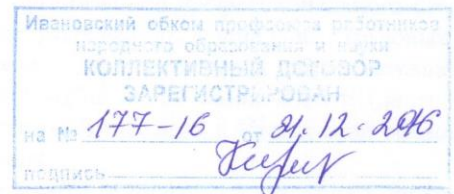 Ивановский обком профсоюза работников
народного образования и науки
КОЛЛЕКТИВНЫЙ ДОГОВОР
ЗАРЕГИСТРИРОВАН
на № 177-16 от 21.12.2016
подпись